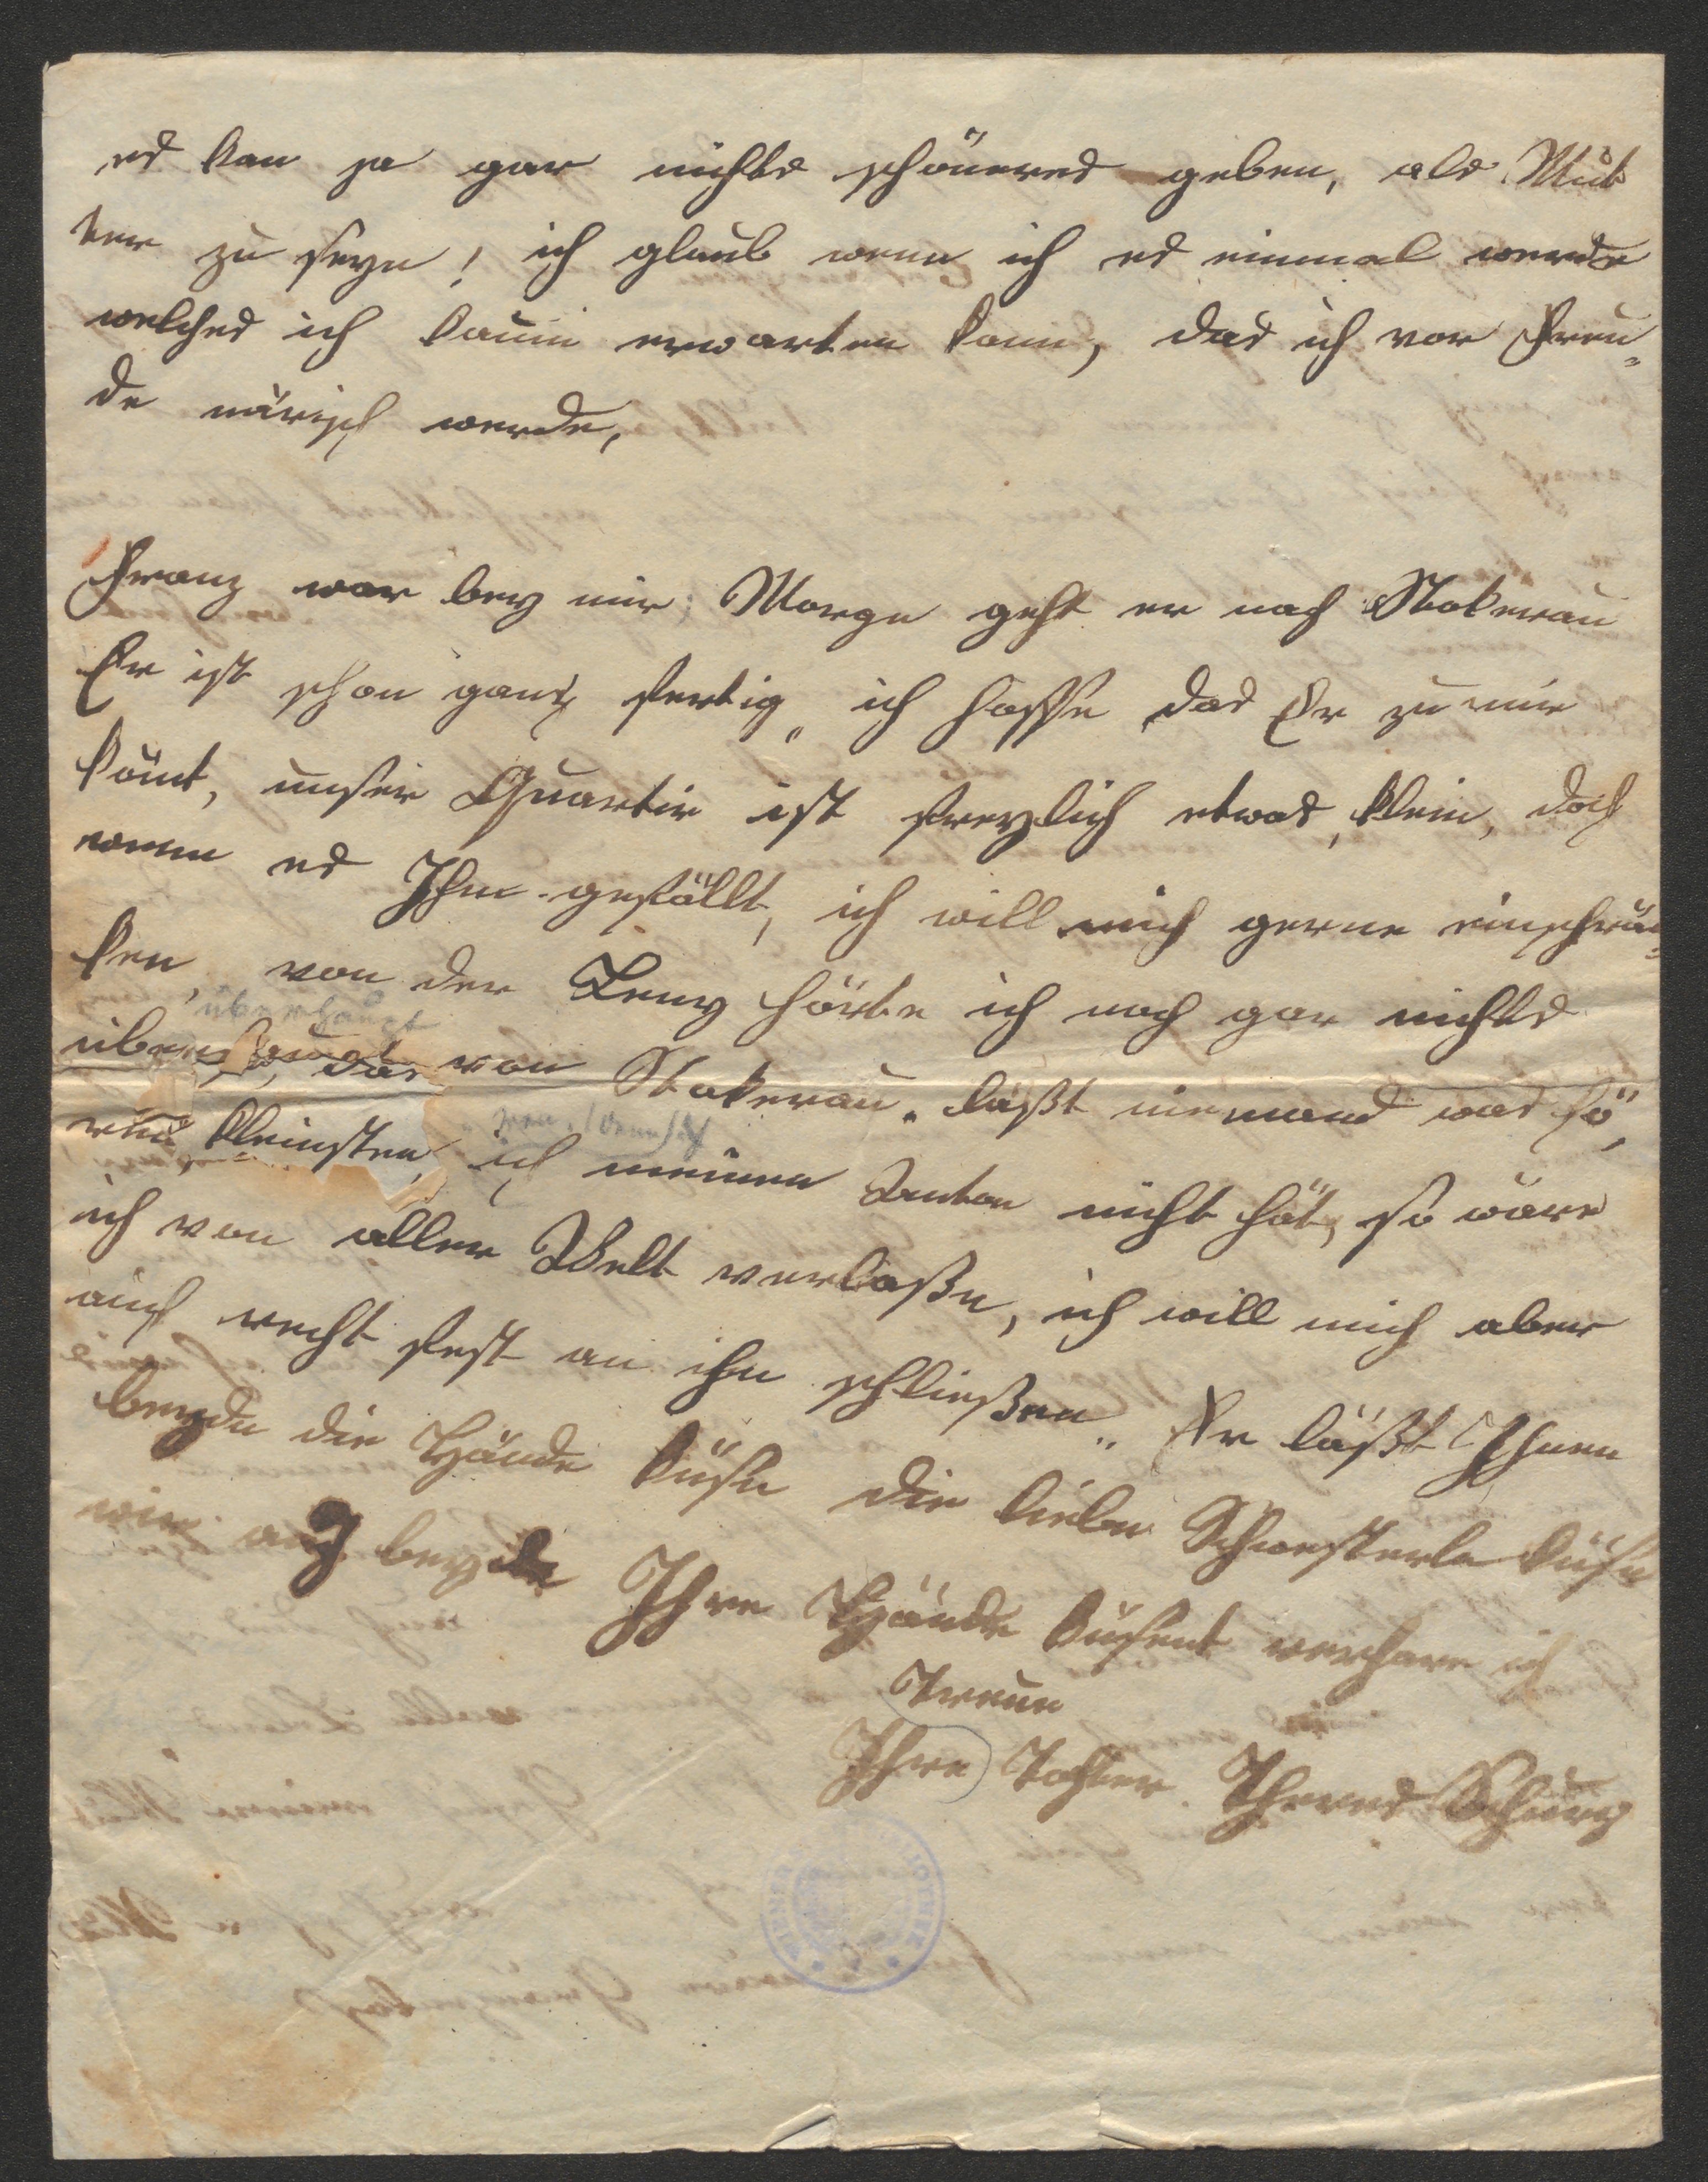 es kan ja gar nichts schöneres geben, als Mut
ter zu seyn! ich glaub wenn ich es einmal werde
welches ich kaum erwarten kann, das ich vor Freu„
de närisch werde,
Franz war bey mir, Morgen geht er nach Stokerau
Er ist schon ganz fertig„ ich hoffe das Er zu mir
kömt, unser Quartir ist freylich etwas klein, doch
wenn es Ihm gefällt, ich will mich gerne einschrän„
ken, von der Leny hörte ich noch gar nichts
überhaupt
überhaupt, das von Stokerau„ laßt niemand was hö„
ren, wenn ich
kleinsten, ich meinen Anton nicht hät, so wäre
ich von aller Welt verlaßen, ich will mich aber
auch recht fest an ihn schließen„ Er läßt Ihnen
beyden die Hände küßen die lieben Schwesterln küßen
wir auch beyde Ihre Hände küßent verharre ich
Treue
Ihre Tochter Theres Schurz